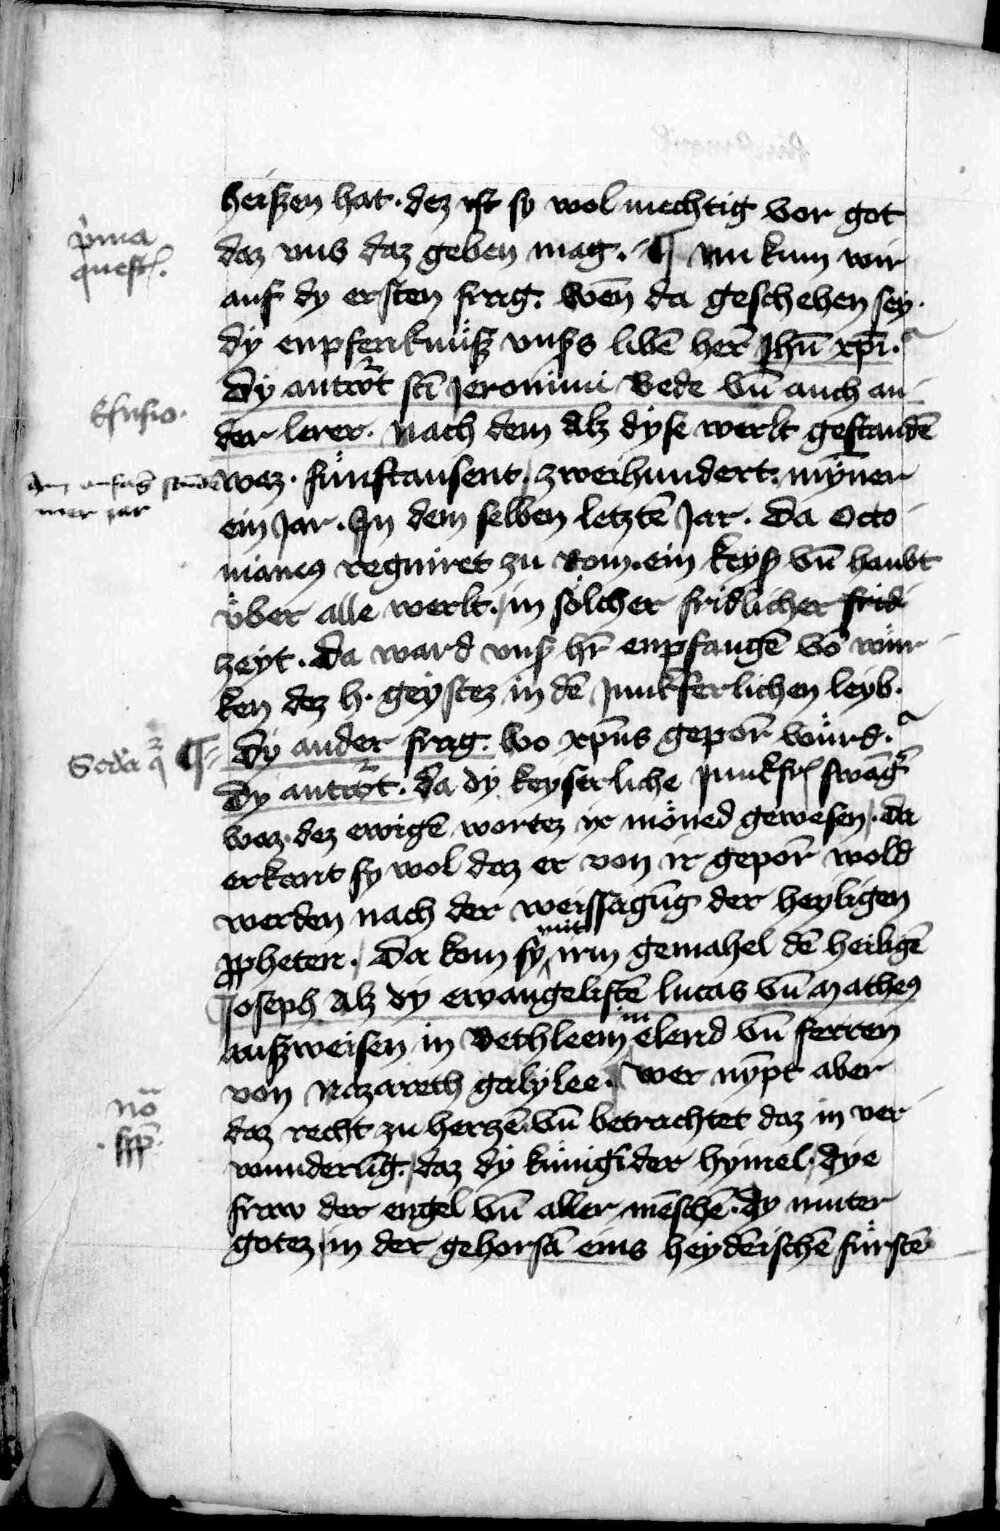 heiszen hat. dez ist sy wol mechtig vor got
daz vns daz geben mag. ¶ Nu kum wir
p̃ma
quest.
auf dy ersten frag. Wen̄ da geschehen sey.
dy enpfenknüsz vnsꝭs libē her̄ Jhū xp̄i.
Dy antwͦrt sc̄i Jeronimi Bede vn̄ auch an
der lerer. Nach dem Alz dyse werlt gestandē
waz. fünftausent, zweihundert. mȳner
ein Jar. In dem selben letztē Jar. Da Octo
nianꝯ regniret zu Rom. ein keysꝭ vn̄ haubt
vͤber alle werlt. in sölcher fridlicher frid
zeyt. Da ward vnsꝭ hr̄ enpfangē vō wür
ken dez h. geystez in dē Junkferlichen leyb.
Scd̄a q̄
¶ Dy ander frag. Wo xp̄us gepor̄ würd.
Dy antwͦrt. Da dy keyserliche Junkfr̄ swāgꝭ
waz. dez ewigē wortez ix möned gewesen. da
erkant sy wol daz er von ir gepor̄ wold
werden nach der weissagūg der heyligen
ꝓpheten. Da kom sy mit irm gemahel dē heiligē
Joseph Alz dy ewangelistē lucas vn̄ Matheꝯ
auszweisen in Bethleem im elend vn̄ ferren
von Nazareth galylee. Wer nȳpt aber
nō
daz recht zu hertzē. vn̄ betrachtet daz in ver
wunderūg. daz dy künigī der hymel, dye
fraw der engel vn̄ aller mēschē. Dy muter
gotez, in der gehorsā eins heydēischē fürstē